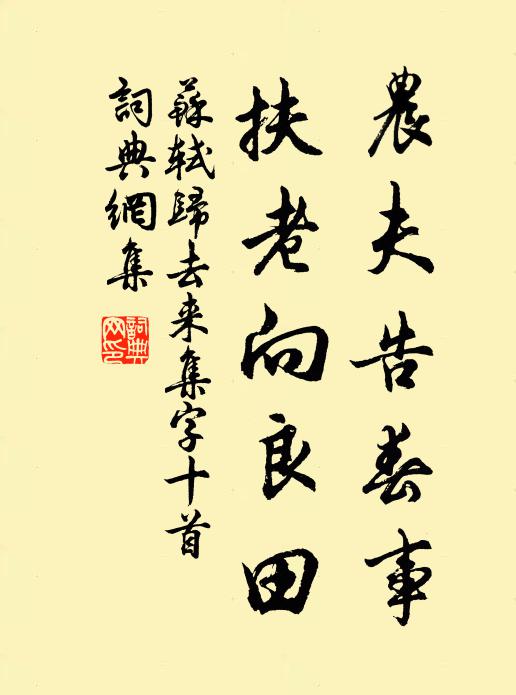 農夫告春事
扶老向良田
蘇軾歸去来集字十首
詞典網集
詞典网印